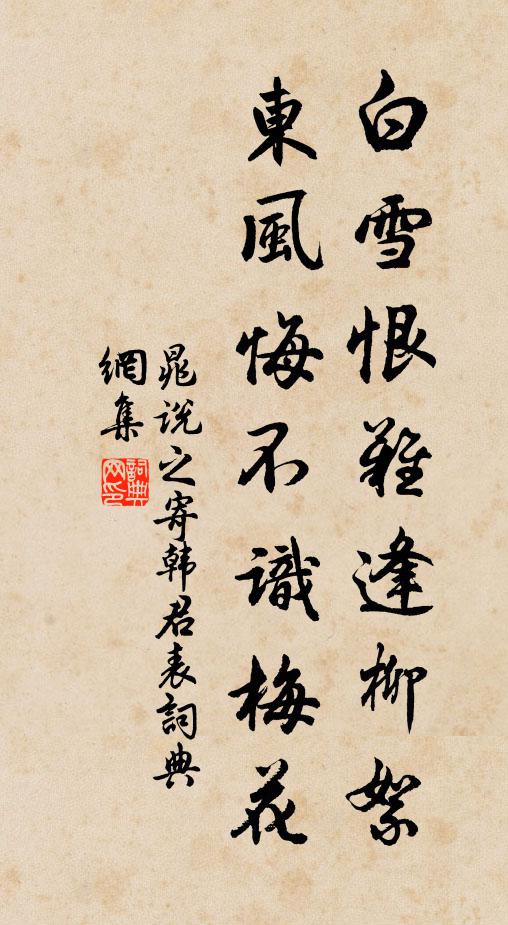 白雪恨難逢柳絮
東風悔不識梅花
晁說之寄韩君表詞典
網集
詞典網印